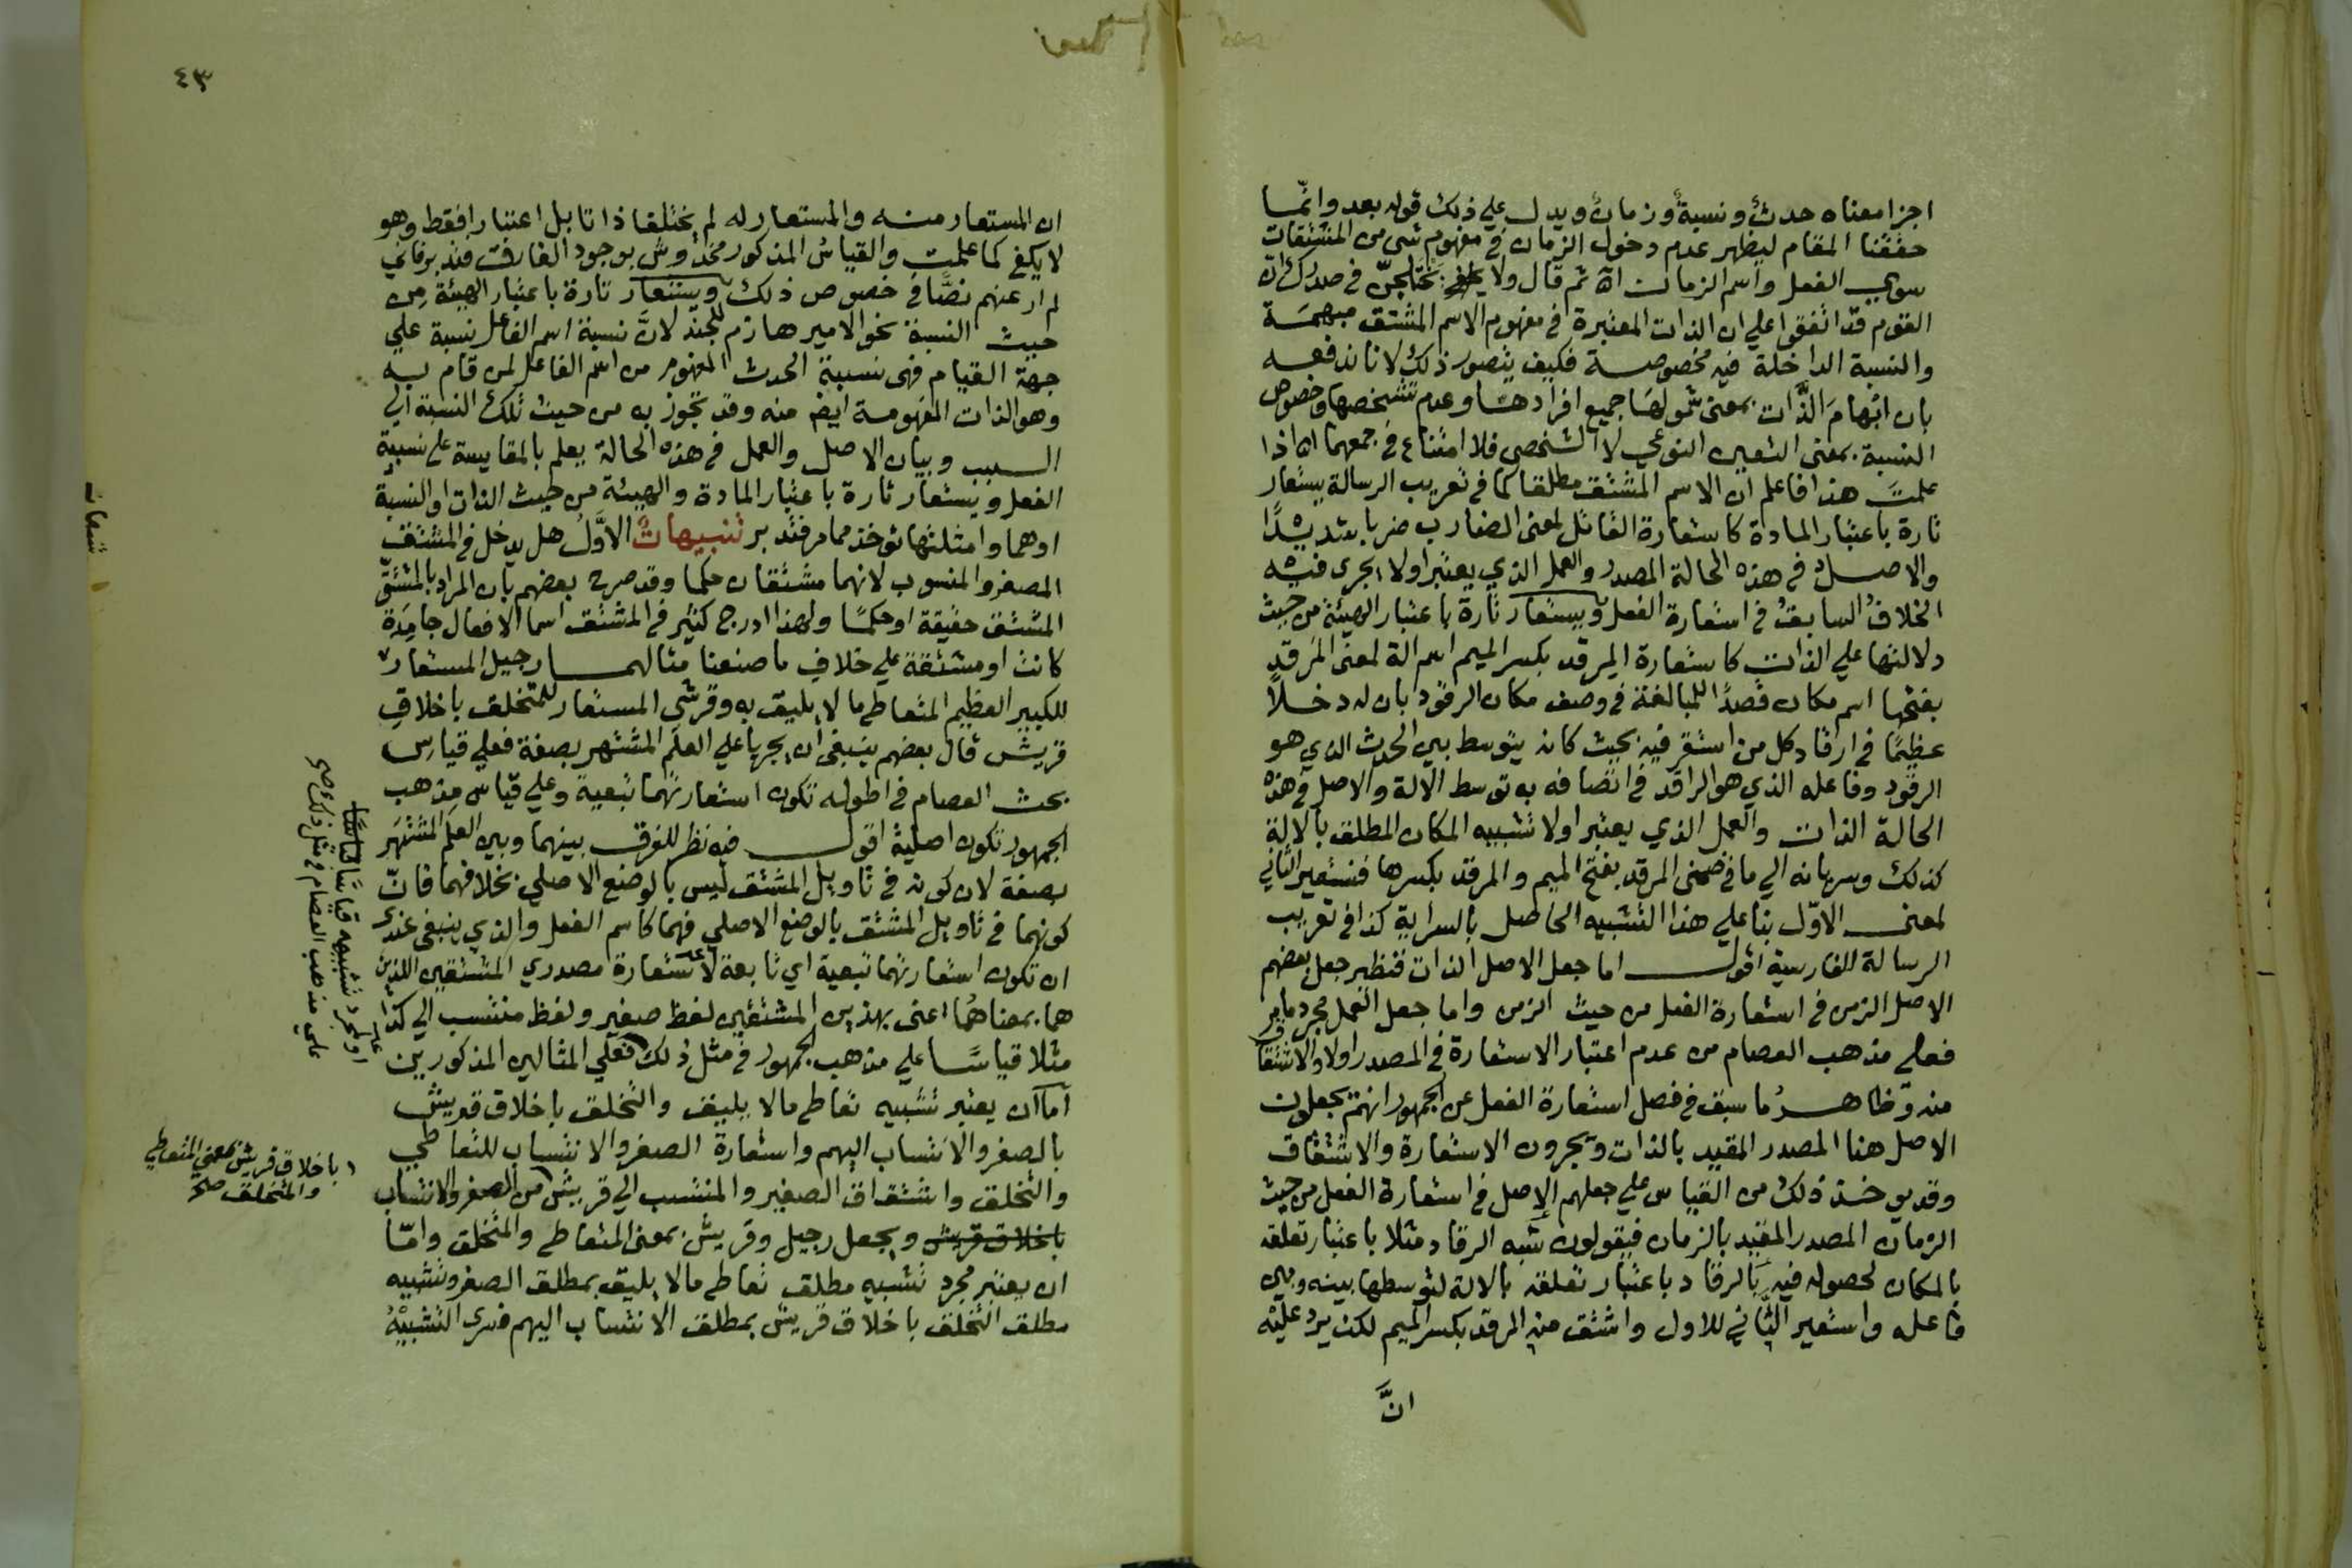 اجزا معناه حدثٌ ونسبةٌ وزمانٌ ويدل علي ذلك قوله بعد وانّما
حققنا المقام ليظهر عدم دخول الزمان في مفهوم شي من المشتقات
سوي الفعل واسم الزمان اه ثم قال ولا يختلجنّ في صدرك انّ
القوم قد اتفقوا علي ان الذات المعتبرة في مفهوم الاسم المشتق مبهمَة
والنسبة الداخلة فيه مخصوصة فكيف يتصور ذلك لانا ندفعه
بان ابْهامَ الذَّات بمعني شمولهَا جميع افرادهَا وعدم تشخصها وخصوص
النسبة بمعني التعين النوعي لا الشخصي فلا امتناع في جمعهما اه اذا
علمتَ هذا فاعلم ان الاسم المشتق مطلقا كما في تعريب الرسالة يستعار
تارة باعتبار المادة كاستعارة القاتل لمعني الضارب ضربا شديدًا
والاصل في هذه الحالة المصدر والعمل الذي يعتبر اولا يجري فيه
الخلافُ السابقُ في استعارة الفعل ويستعار تارة باعتبار الهيئة من حيث
دلالتها علي الذات كاستعارة المِرقد بكسر الميم اسم الة لمعني المَرقد
بفتحها اسم مكان قصدًا للمبالغة في وصف مكان الرقود بان له دخلاً
عظيمًا في ارقاد كل من استقر فيه بحيث كانه يتوسط بين الحدث الذي هو
الرقود وفاعله الذي هو الراقد في اتصافه به توسط الالة والاصل في هذه
الحالة الذات والعمل الذي يعتبر اولا تشبيه المكان المطلق بالالة
كذلك وسريانه الي ما في ضمني المرقد بفتح الميم والمرقد بكسرها فنستعير الثاني
لمعني الاوّل بنا علي هذا التشبيه الحاصل بالسراية كذا في تعريب
الرسالة الفارسية اقول اما جعل الاصل الذات فنظير جعل بعضهم
الاصل الزمن في استعارة الفعل من حيث الزمن واما جعل العمل مجرد ما مر
فعلي مذهب العصام من عدم اعتبار الاستعارة في المصدر اولا والاشتقاق
منه وظاهرُ ما سبق في فصل استعارة الفعل عن الجمهور انهم يجعلون
الاصل هنا المصدر المقيد بالذات ويجرون الاستعارة والاشتقاق
وقد يوخذ ذلك من القياس علي جعلهم الاصل في استعارة الفعل من حيث
الزمان المصدر المقيد بالزمان فيقولون شبه الرقاد مثلا باعتبار تعلقه
بالمكان لحصوله فيه بالرقاد باعتبار تعلقه بالالة لتوسطها بينه وبين
فاعله واستعير الثَّاني للاول واشتق منه المرقد بكسر الميم لكن يرد عليْه
انَّ
٤٣
ان المستعار منه والمستعار له لم يختلفا ذاتا بل اعتبارا فقط وهو
لا يكفي كما علمت والقياسُ المذكور مخدوش بوجود الفارق فتدبر فاني
لم ار عنهم نصًّا في خصوص ذلك ويستعار تارة باعتبار الهيئة مِن
حيث النسبة نحو الامير هازم للجند لانَّ نسبة اسم الفاعل نسبة علي
جهة القيام فهي نسبة الحدث المفهوم من اسم الفاعل لمن قام به
وهو الذات المفهومة ايضا منه وقد تجوز به من حيث تلك النسبة الي
السبب وبيان الاصل والعمل في هذه الحالة يعلم بالمقايسة علي نسبة
الفعل ويستعار تارة باعتبار المادة والهيئة من حيث الذات او النسبة
اوهما وامثلتها توخذ مما مر فتدبر تنبيهاتٌ الاوَّل هل يدخل في المشتق
المصغر والمنسوب لانهما مشتقان حكما وقد صرح بعضهم بان المراد بالمشتق
المشتق حقيقة او حكمًا ولهذا ادرج كثير في المشتق اسما الافعال جامِدَة
كانت او مشتقة علي خلاف ما صنعنا مثالهما رجيل المستعار
للكبير العظيم المتعاطي ما لا يليق به وقرشي المستعار للمتخلق باخلاقِ
قريش قال بعضهم ينبغي ان يجريا علي العلَم المشتهر بصفة فعلي قياس
بحث العصام في اطوله تكون استعارتهما تبعية وعلي قياس مذهب
الجمهور تكون اصلية اقول فيه نظر للفرق بينهما وبين العلَم المشتهَر
بصفة لان كونه في تاويل المشتق ليس بالوضع الاصلي بخلافهما فانّ
كونهما في تاويل المشتق بالوضع الاصلي فهما كاسم الفعل والذي ينبغي عندي
ان تكون استعارتهما تبعية اي تابعة لاستعارة مصدري المشتقين اللذين
هما بمعناهُما اعني بهذين المشتقين لفظ صغير ولفظ منتسب الي كذا
مثلا قياسًا علي مذهب الجمهور في مثل ذلك فعلي المثالين المذكورين
اما ان يعتبر تشبيه تعاطي ما لا يليق والتخلق باخلاق قريش
بالصغر والانتساب اليهم واستعارة الصغر والانتساب للتعاطي
والتخلق واشتقاق الصغير والمنتسب الي قريش من الصغر والانتساب
باخلاق قريش ويجعل رجيل وقريش بمعني المتعاطي والمتخلق وامّا
ان يعتبر مجرد تشبيه مطلق تعاطي ما لا يليق بمطلق الصغر وتشبيه
مطلق التخلق باخلاق قريش بمطلق الانتساب اليهم فسري التشبيْهُ
او لمجرد تشبيهه قياسًا
علي مذهب العصام في مثل ذلك صح
باخلاق قريش بمعني المتعاطي
والمتخلق صح